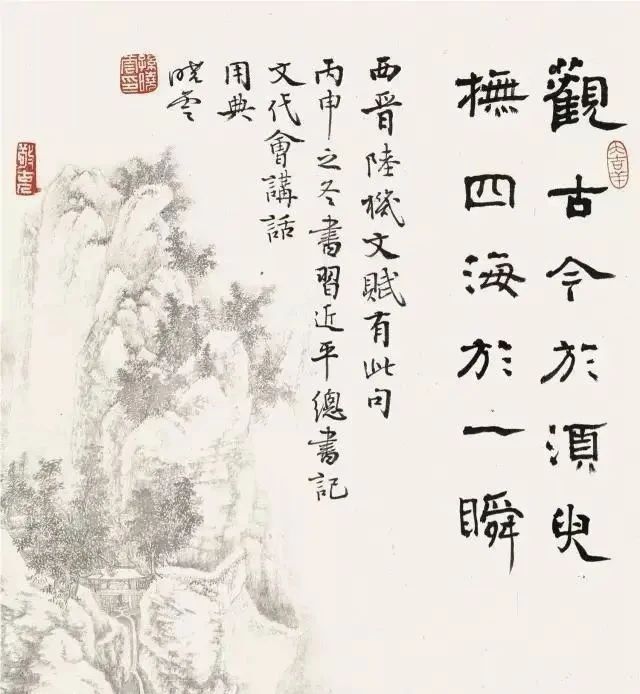 觀古今於須臾
撫四海於一瞬
西晋陸機文賦有此句
丙申之冬書習近平總書記
文代會講話
用典
曉雲
孫曉雲印